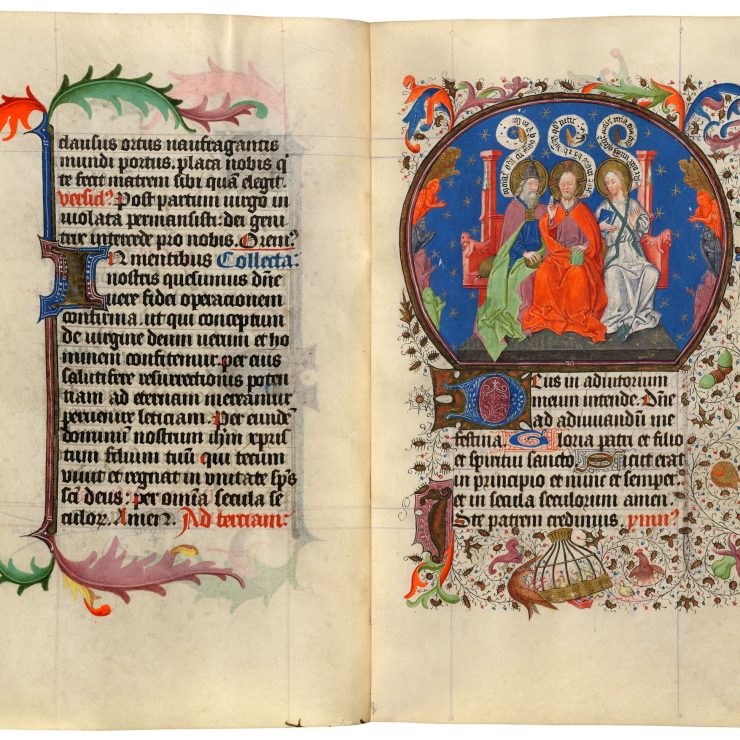 clausus ortus naufragantis
mundi portus. placa nobis q̄
te fecit matrem sibi quā elegit.
versicl'? Post partum virgo in
violata permansisti: dei geni
trix intercede pro nobis. Orem?
In mentibus Collecta:
nostris quesumus dn̄e
vere fidei operacionem
confirma. ut qui conceptum
de virgine deum verum et ho
minem confitemur. per eius
salutifere resurrectionis poten
tiam ad eternam mereamur
pervenire leticiam. Per eundē
dominum nostrum ihm̄ xpris
tum filium tuū qui tecum
vivit et regnat in unitate sp̄s
sc̄i deus: per om̄ia secula se
culor. Amen. Ad terciam:
Deus in adiutorium
meum intende. Dn̄e
ad adiuvandū me
festina. Gloria patri et filio
et spiritui sancto Sicut erat
in principio et nunc et semper:
et in secula seculorum amen.
Iste patrem credimus. ymn?